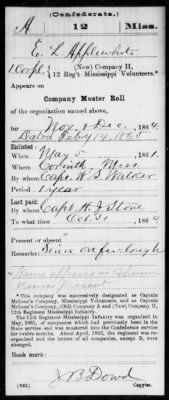 (Confederate.)
A 12 Miss.
E. L. Applewhite
1 Corpl, (New) Company H,
12 Reg't Mississippi Volunteers.*
Appears on
Company Muster Roll
of the organization named above,
for Nov & Dec, 1864.
Dated Feby 14, 1865
Enlisted:
When May 5, 1861.
Where Corinth, Miss.
By whom Capt. W. S. Walker
Period 1 year
Last paid:
By whom Capt. H. J. Stone
To what time Oct. 31, 1864
Present or absent
Remarks: Since on furlough
Name appears in column
Names present
* This company was successively designated as Captain
McLean's Company, Mississippi Volunteers, and as Captain
McLean's Company, (Old) Company A and (New) Company H,
12th Regiment Mississippi Infantry.
The 12th Regiment Mississippi Infantry was organized in
May, 1861, of companies which had previously been in the
State service and was mustered into the Confederate service
for twelve months. About April, 1862, the regiment was re-
organized and the letters of all companies, except D, were
changed.
Book mark:
J B Dowd
(642) Copyist.